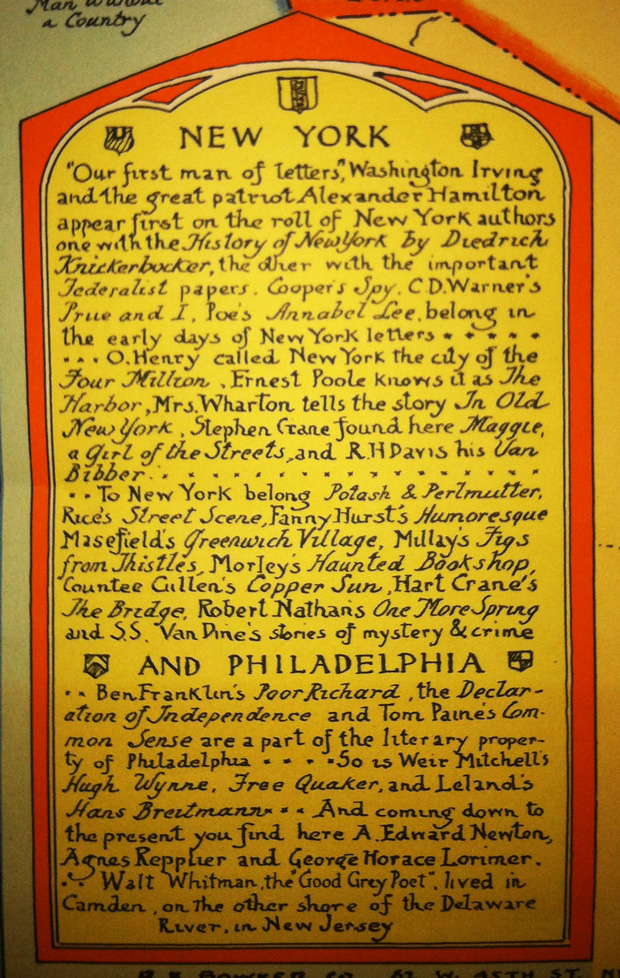 Man Without
a Country
NEW YORK
"Our first man of letters", Washington Irving
and the great patriot Alexander Hamilton
appear first on the roll of New York authors
one with the History of New York by Diedrich
Knickerbocker, the other with the important
Federalist papers. Cooper's Spy, C.D.Warner's
Prue and I, Poe's Annabel Lee, belong in
the early days of New York letters * * * * *
... O.Henry called New York the city of the
Four Million, Ernest Poole knows it as The
Harbor, Mrs. Wharton tells the story In Old
New York, Stephen Crane found here Maggie,
a Girl of the Streets, and R.H Davis his Van
Bibber.
.. To New York belong Potash & Perlmutter,
Rice's Street Scene, Fanny Hurst's Humoresque
Masefield's Greenwich Village, Millay's Figs
from Thistles, Morley's Haunted Bookshop,
Countee Cullen's Copper Sun, Hart Crane's
The Bridge, Robert Nathans One More Spring
and S.S. Van Dine's stories of mystery & crime
AND PHILADELPHIA
.. Ben Franklin's Poor Richard, the Declar-
ation of Independence and Tom Paine's Com-
mon Sense are a part of the literary proper-
ty of Philadelphia * * * * So is Weir Mitchell's
Hugh Wynne, Free Quaker, and Leland's
Hans Breitmann * * * And coming down to
the present you find here A. Edward Newton,
Agnes Repplier and George Horace Lorimer.
.. Walt Whitman, the "Good Grey Poet", lived in
Camden, on the other shore of the Delaware
River, in New Jersey
R. R. BOWKER CO. 62 W. 45TH ST. N